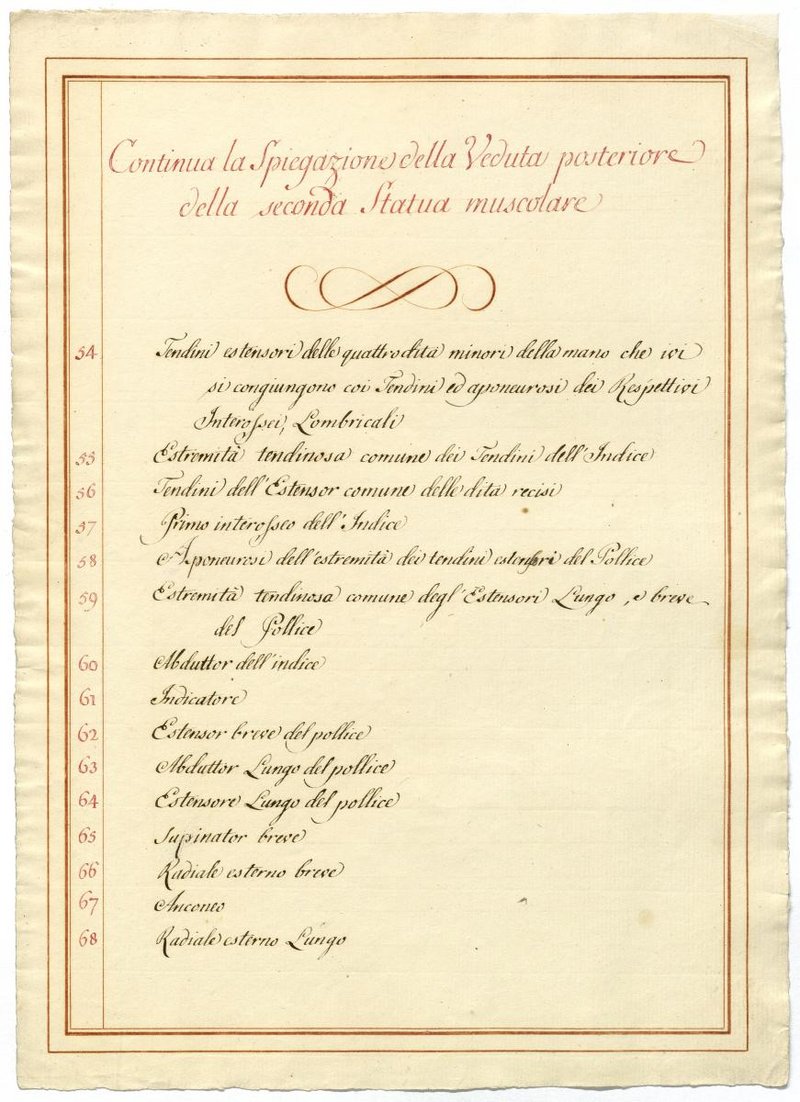 Continua la Spiegazione della Veduta posteriore
della seconda Statua muscolare
54 Tendini estensori delle quattro dita minori della mano che ivi
si congiungono coi Tendini ed aponeurosi dei Respettivi
Interossei, Lombricali
55 Estremità tendinosa comune dei Tendini dell'Indice
56 Tendini dell'Estensor comune delle dita recisi
57 Primo interosseo dell'Indice
58 Aponeurosi dell'estremità dei tendini estensori del Pollice
59 Estremità tendinosa comune degl'Estensori Lungo, e breve
del Pollice
60 Abduttor dell'indice
61 Indicatore
62 Estensor breve del pollice
63 Abduttor Lungo del pollice
64 Estensore Lungo del pollice
65 Supinator breve
66 Radiale esterno breve
67 Anconeo
68 Radiale esterno Lungo